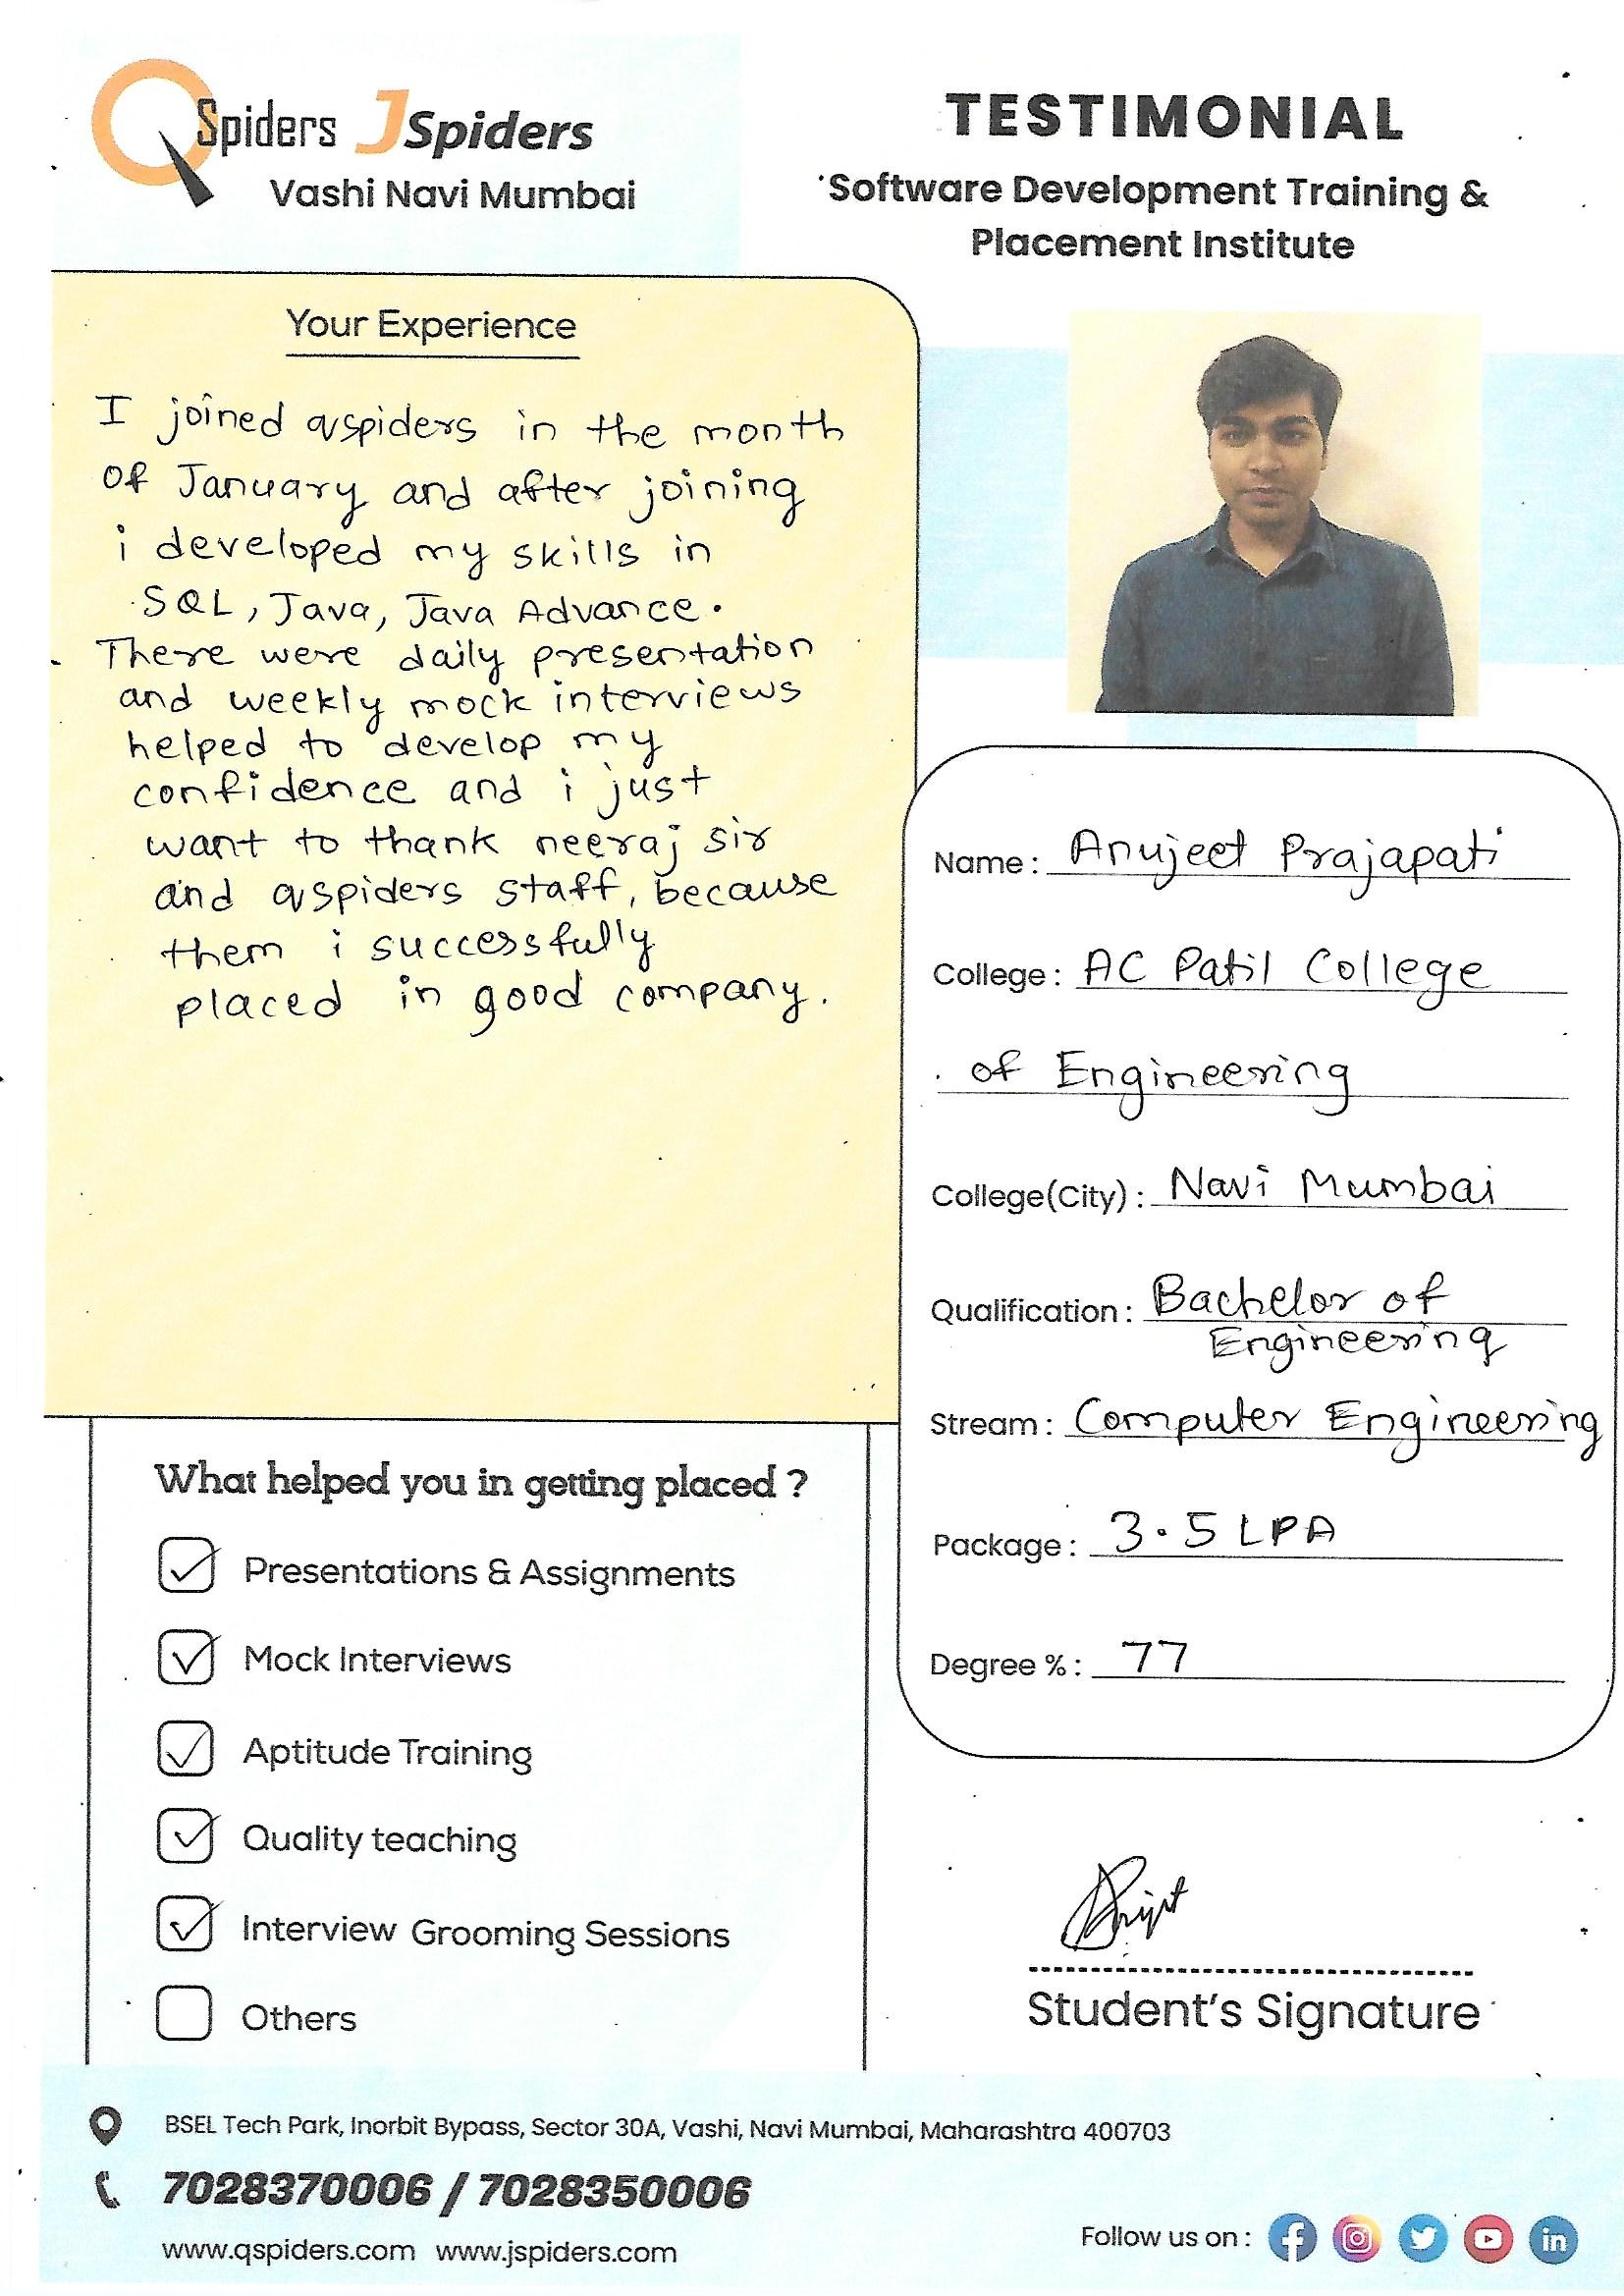 QSpiders JSpiders
Vashi Navi Mumbai
TESTIMONIAL
Software Development Training &
Placement Institute
Your Experience
I joined qspiders in the month
of January and after joining
i developed my skills in
SQL, Java, Java Advance.
There were daily presentation
and weekly mock interviews
helped to develop my
confidence and i just
want to thank neeraj sir
and qspiders staff, because
them i successfully
placed in good company.
Name: Anujeet Prajapati
College: AC Patil College
of Engineering
College(City): Navi Mumbai
Qualification: Bachelor of
Engineering
Stream: Computer Engineering
Package: 3.5 LPA
Degree %: 77
What helped you in getting placed ?
Presentations & Assignments
Mock Interviews
Aptitude Training
Quality teaching
Interview Grooming Sessions
Others
Student's Signature
BSEL Tech Park, Inorbit Bypass, Sector 30A, Vashi, Navi Mumbai, Maharashtra 400703
7028370006 / 7028350006
www.qspiders.com www.jspiders.com
Follow us on :